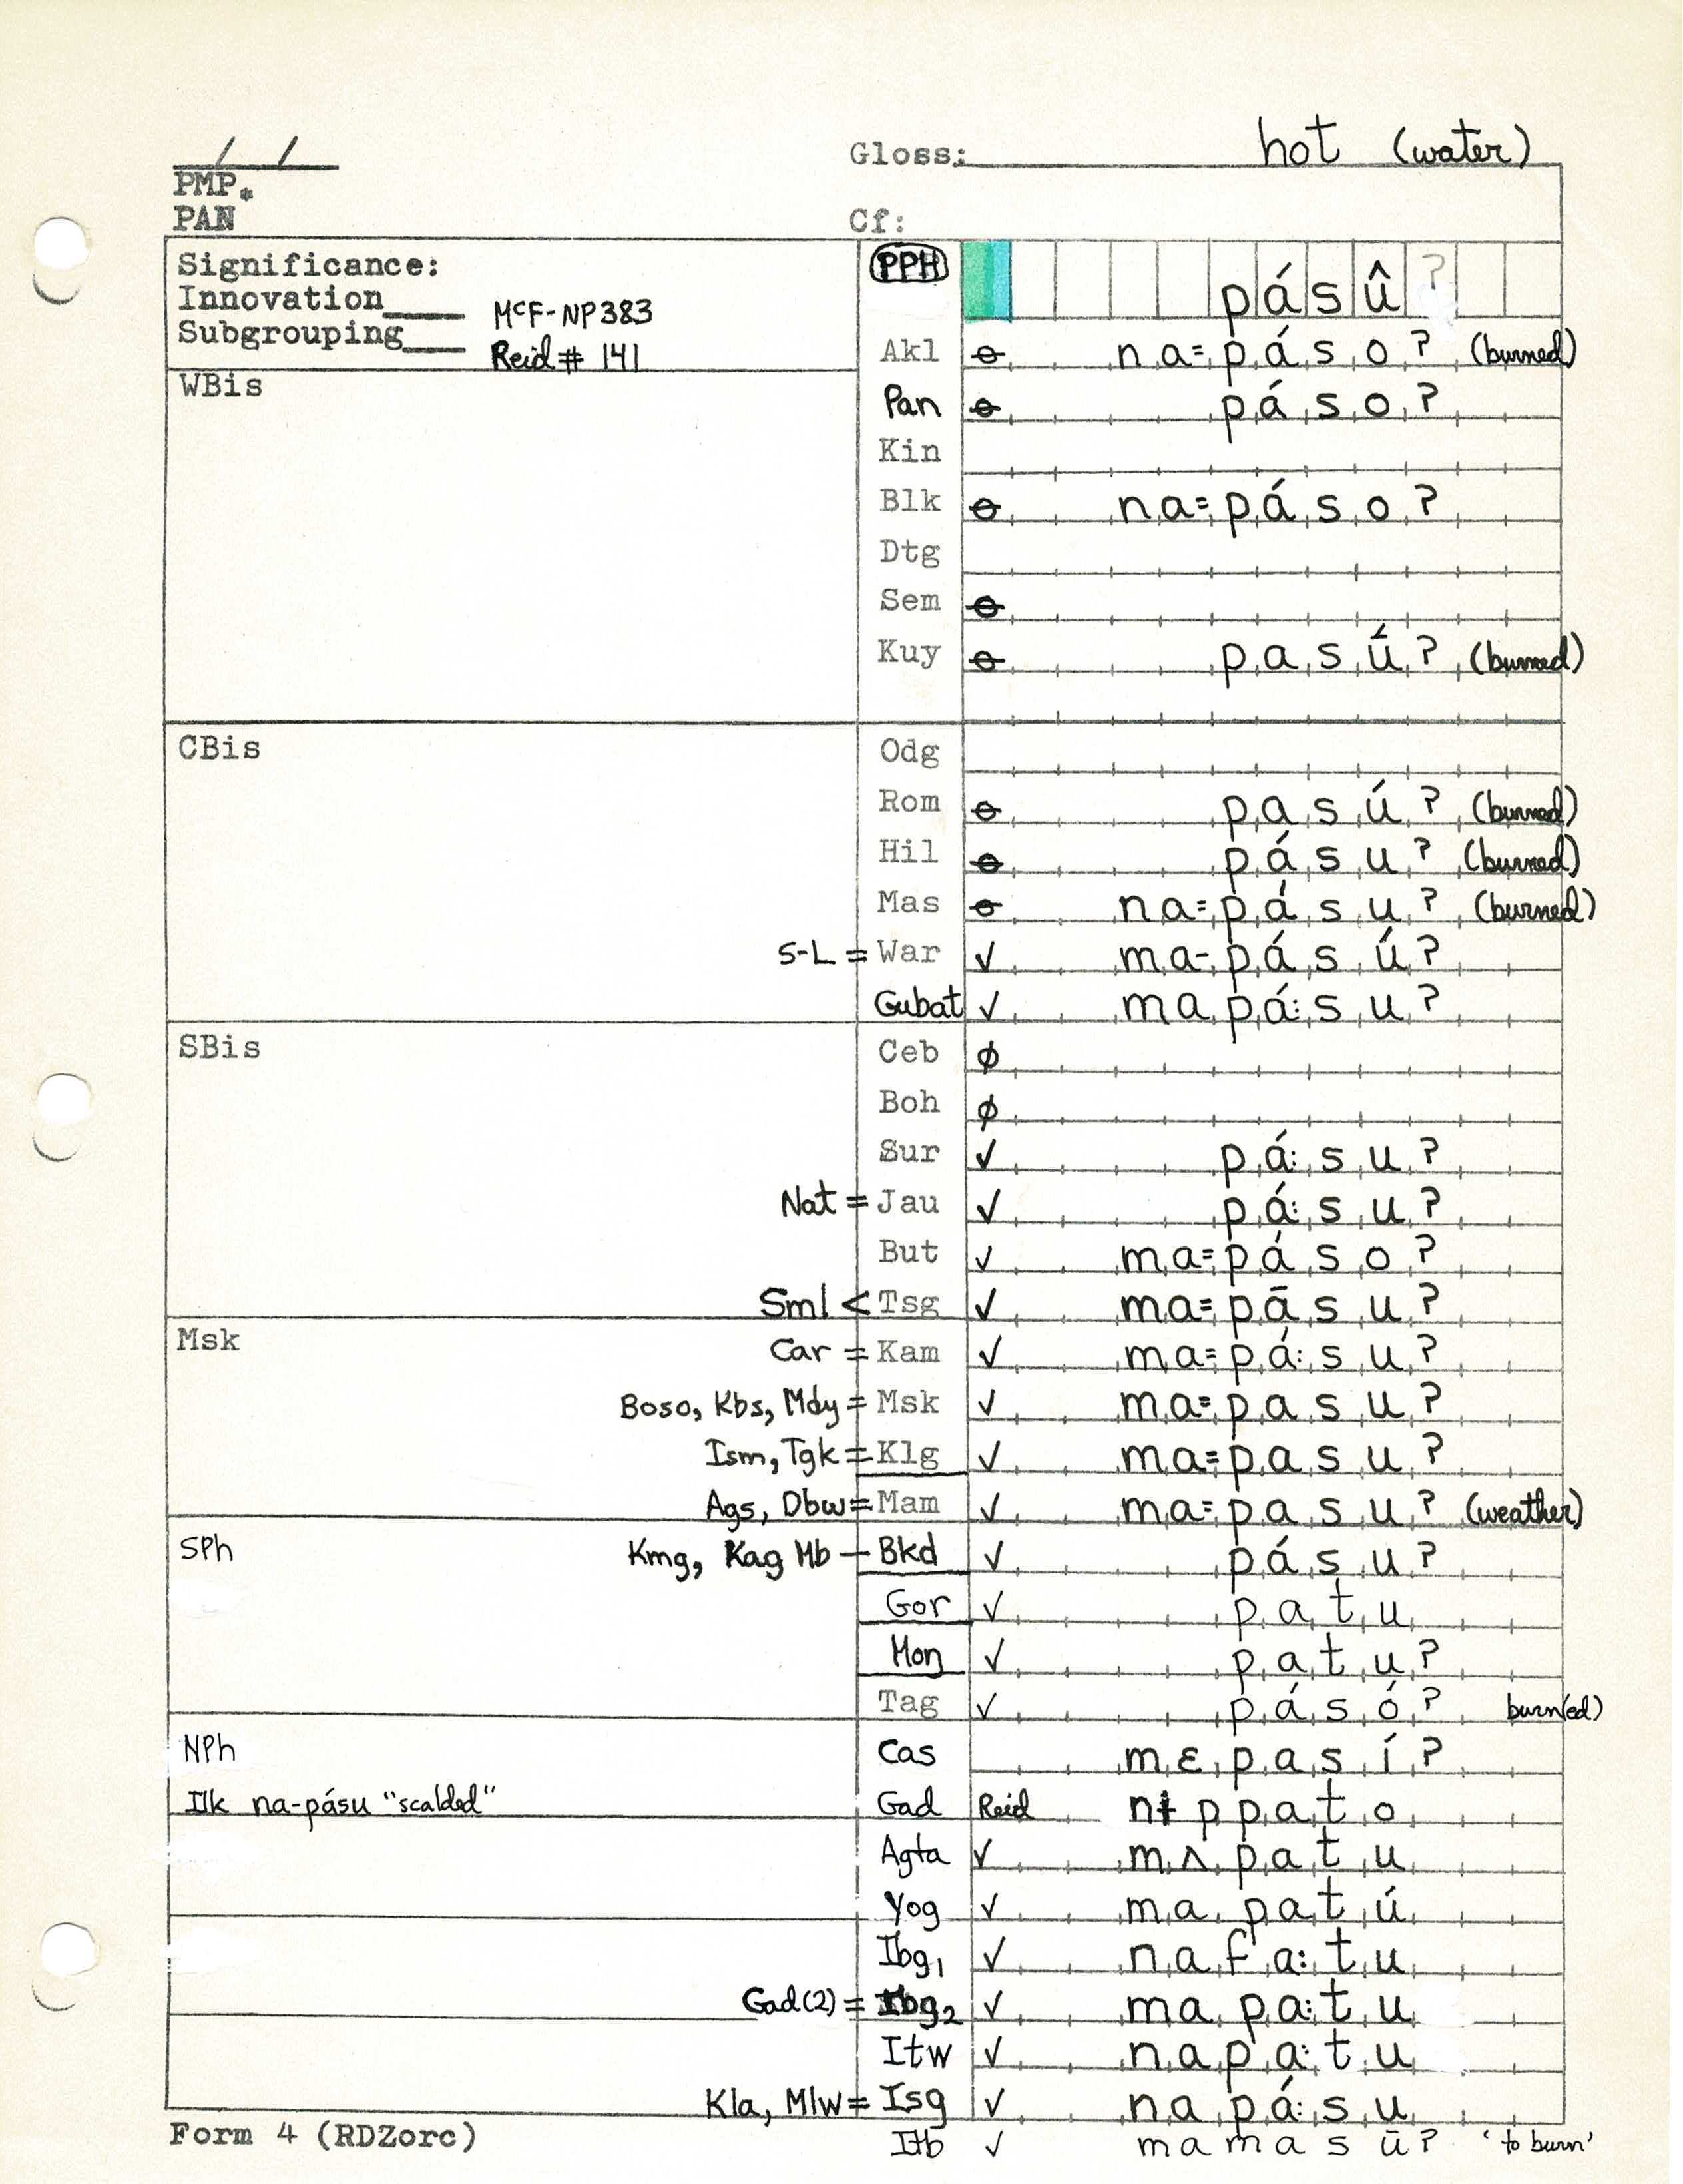 / /
Gloss: hot (water)
PMP *
PAN
Cf:
Significance:
Innovation____ McF-NP383
Subgrouping____ Reid # 141
PPH pásû ?
Akl ɵ na=páso? (burned)
WBis
Pan ɵ páso?
Kin
Blk ɵ na=páso?
Dtg
Sem ɵ
Kuy ɵ pasú? (burned)
CBis
Odg
Rom ɵ pasú? (burned)
Hil ɵ pásu? (burned)
Mas ɵ na=pásu? (burned)
S-L = War ✓ ma-pású?
Gubat ✓ mapá:su?
SBis
Ceb ϕ
Boh ϕ
Sur ✓ pá:su?
Nat = Jau ✓ pá:su?
But ✓ ma=páso?
Sml < Tsg ✓ ma=pāsu?
Msk
Car = Kam ✓ ma=pá:su?
Boso, Kbs, Mdy = Msk ✓ ma=pasu?
Ism, Tgk = Klg ✓ ma=pasu?
Ags, Dbw = Mam ✓ ma=pasu? (weather)
SPh
Kmg, Kag Mb — Bkd ✓ pásu?
Gor ✓ patu
Mon ✓ patu?
Tag ✓ pásó? burn(ed)
NPh
Cas mɛpasí?
Ilk na-pásu "scalded"
Gad Reid nɨppato
Agta ✓ mʌpatu
Yog ✓ mapatú
Ibg1 ✓ nafa:tu
Gad(2) = Ibg2 ✓ mapa:tu
Itw ✓ napa:tu
Kla, Mlw = Isg ✓ napá:su
Form 4 (RDZorc)
Itb ✓ mamasū? 'to burn'